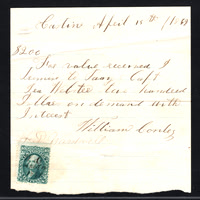 Carlin April 18th / 1869
$200
For value received I
promise to pay Capt
Geo Webster two hundred
Dollars on demand with
Interest
William Conly